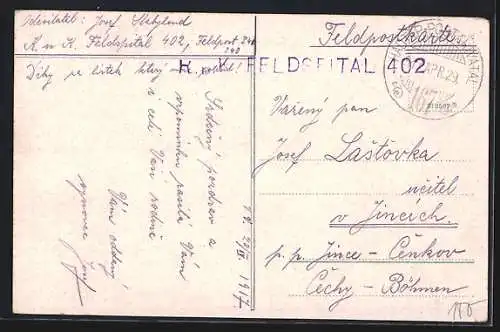 Odesílatel: Josef
K. u. K. Feldspital 402, Feldpost 240
240
Díky za lístek
K. u. K. FELDSPITAL 402
Srdečný pozdrav a
vzpomínku zasílá Vám
i celé Vaší rodině
Vám oddaný
synovec Josef
28/IV 1917
Feldpostkarte
APR. 29
Vážený pan
Josef Laštovka
učitel
v Jincích.
p. p. Jince - Čenkov
Čechy - Böhmen